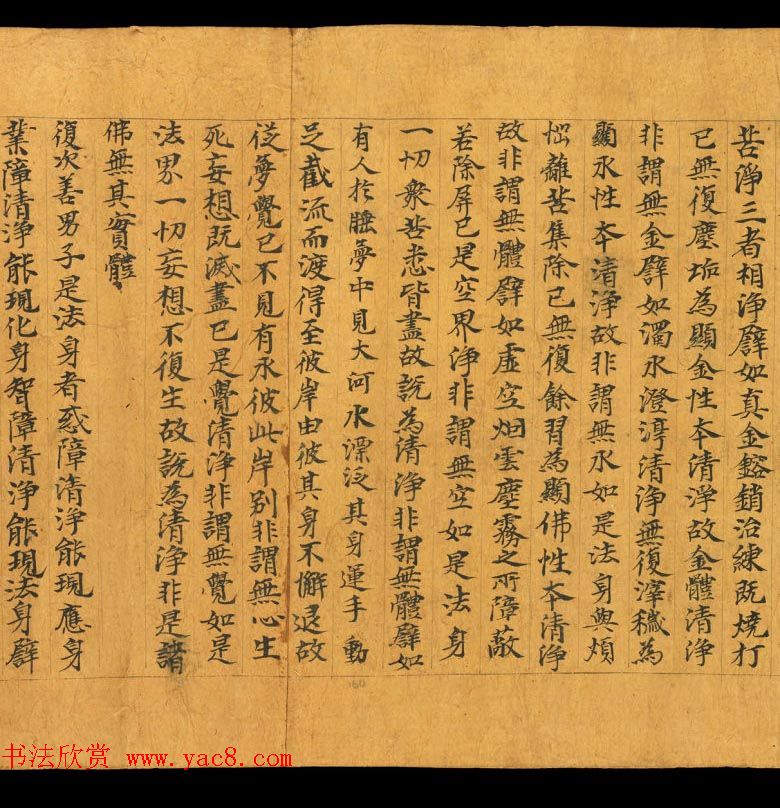 苦淨三者相淨譬如真金鎔銷治練既燒打
已無復塵垢為顯金性本清淨故金體清淨
非謂無金譬如濁水澄渟清淨無復滓穢為
顯水性本清淨故非謂無水如是法身與煩
惱離苦集除已無復餘習為顯佛性本清淨
故非謂無體譬如虛空烟雲塵霧之所障蔽
若除屏已是空界淨非謂無空如是法身
一切衆苦悉皆盡故說為清淨非謂無體譬如
有人於睡夢中見大河水漂泛其身運手動
足截流而渡得至彼岸由彼其身不懈退故
從夢覺已不見有水彼此岸別非謂無心生
死妄想既滅盡已是覺清淨非謂無覺如是
法界一切妄想不復生故說為清淨非是諸
佛無其實體
復次善男子是法身者惑障清淨能現應身
業障清淨能現化身智障清淨能現法身譬
160
书法欣赏 www.yac8.com